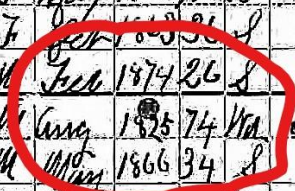 F Feb 1863 36 S
Feb 1874 26 S
M Aug 1825 74 Wd
M May 1866 34 S